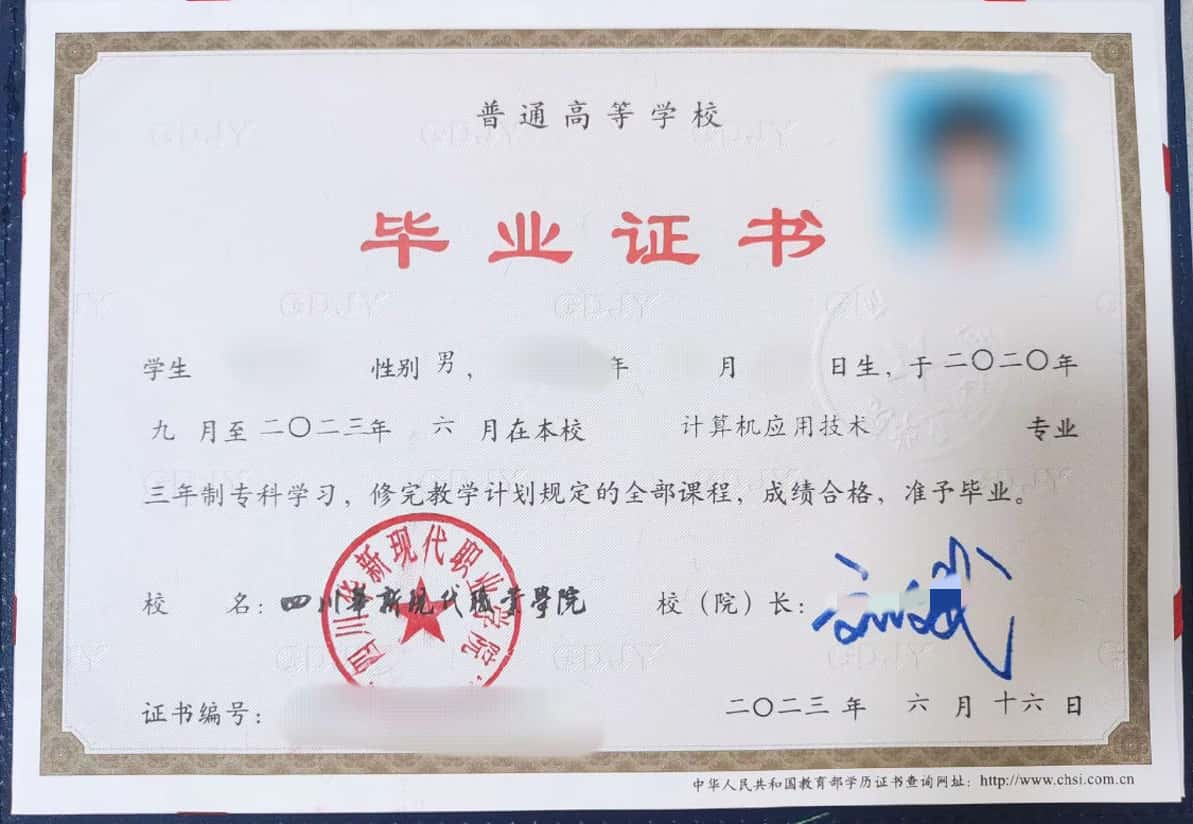 普通高等学校
毕业证书
学生 性别 男， 年 月 日生，于 二〇二〇年
九 月至 二〇二三年 六 月在本校 计算机应用技术 专业
三年制专科学习，修完教学计划规定的全部课程，成绩合格，准予毕业。
四川华新现代职业学院
校 名：四川華新现代職業學院 校（院）长：
证书编号：
二〇二三 年 六 月 十六 日
中华人民共和国教育部学历证书查询网址：http://www.chsi.com.cn
GDJY